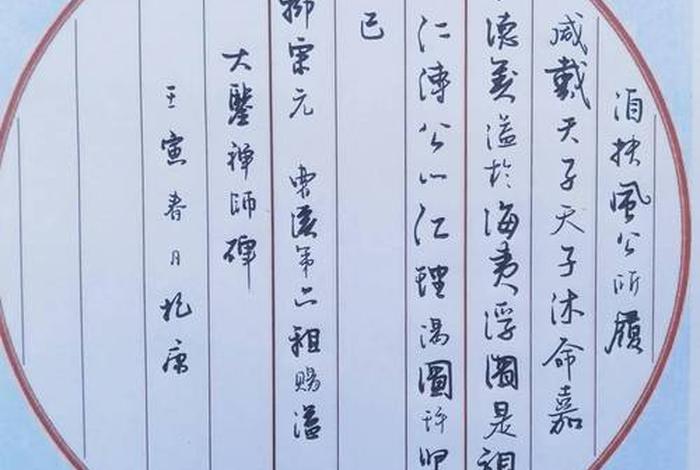 洎扶風公所履
咸戴天子天子休命嘉
德美溢於海夷浮圖是視
仁傳公以仁理謁圖
已
柳宗元 曹溪第六祖賜謚
大鑒禪師碑
壬寅春月